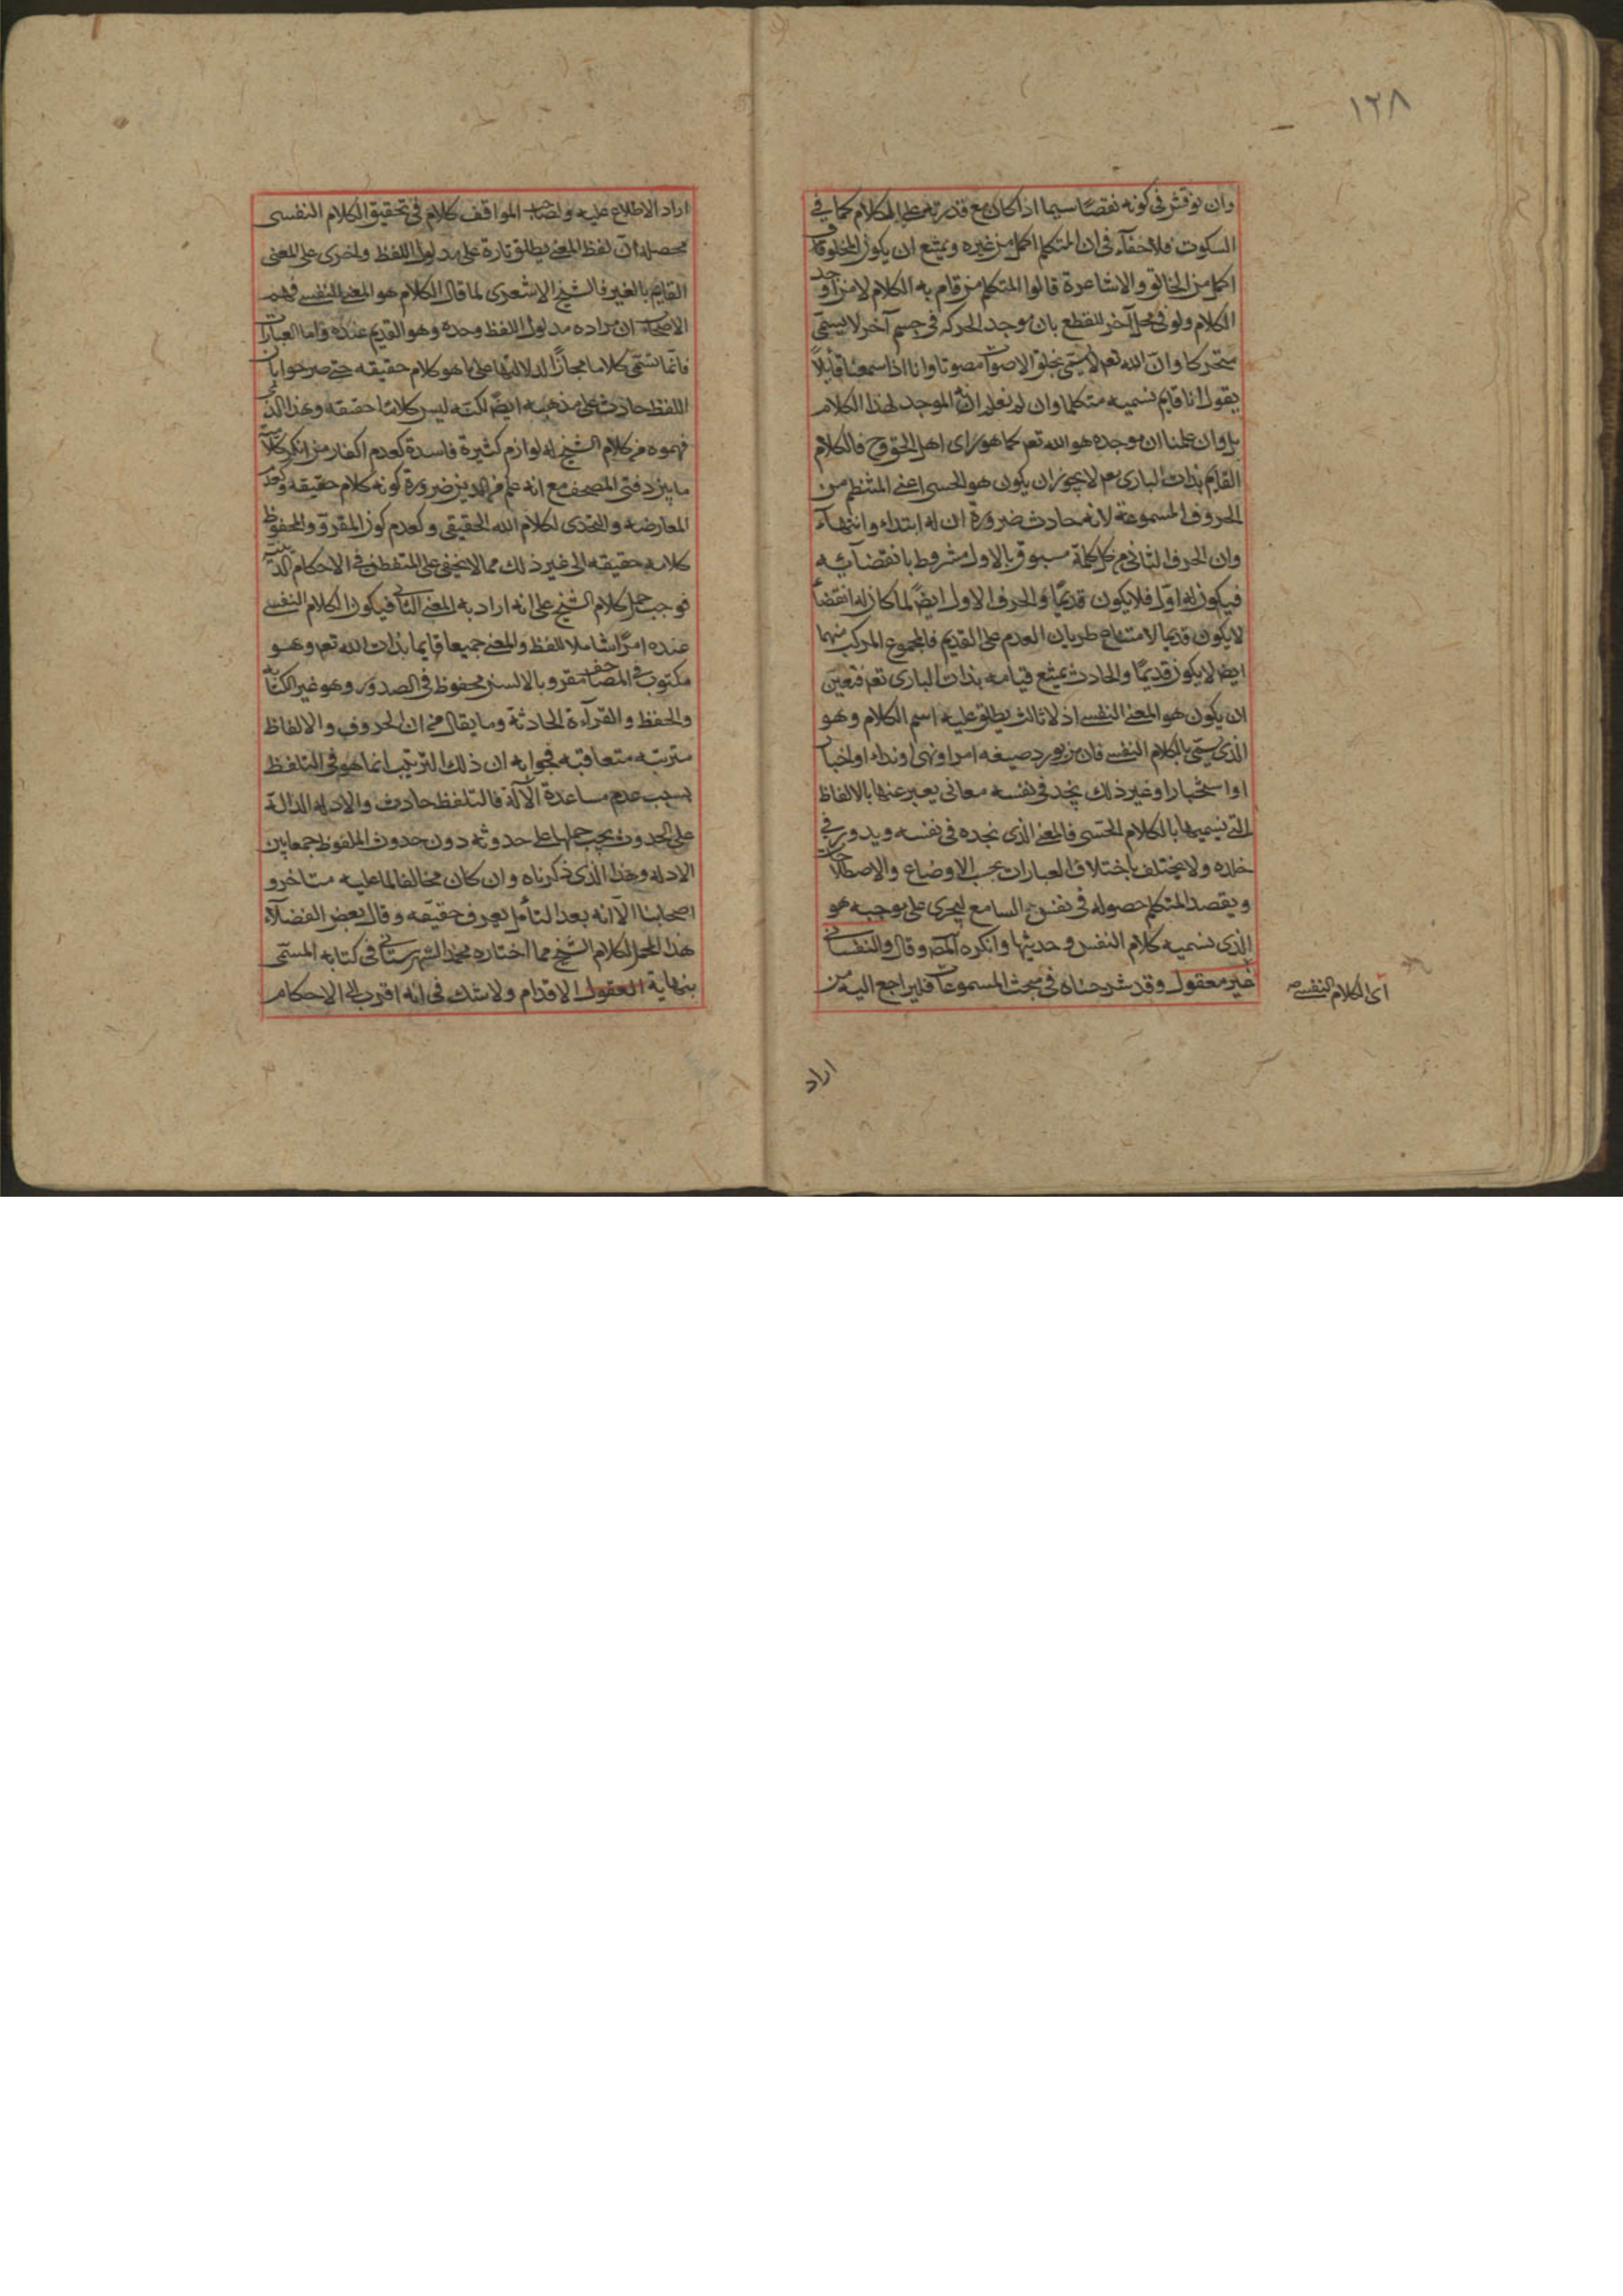 ١٢٨
وان نوقش فى كونه نقصًا سيما اذا كان مع قدرته على الكلام كما فى
السكوت فلا خفآء فى ان المتكلم اكمل من غيره ويمتنع ان يكون المخلوقات
اكمل من الخالق والاشاعرة قالوا المتكلم من قام به الكلام لا من اوجد
الكلام ولو فى محل آخر للقطع بان موجد الحركه فى جسم آخر لا يسمّى
متحركا وانّ الله تعم لا يسمّى بخلق الاصوات مصوتا وانا اذا سمعنا قايلاً
يقول انا قايم نسميه متكلما وان لم نعلم انّه الموجد لهذا الكلام
بل وان علمنا ان موجده هو الله تعم كما هو راى اهل الحق وح فالكلام
القايم بذات البارى تعم لا يجوز ان يكون هو الحسى اعنى المنتظم من
الحروف المسموعة لانه حادث ضرورة ان له ابتداء وانتهآء
وان الحرف الثانى من كل كلمة مسبوق بالاول مشروط بانقضآئه
فيكون له اوّل فلا يكون قديمًا والحرف الاول ايضًا لما كان له انقضاً
لا يكون قديما لامتناع طريان العدم على القديم فالمجموع المركب منهما
ايضا لا يكون قديمًا والحادث يمتنع قيامه بذات البارى تعم فتعيّن
ان يكون هو المعنى النفسى اذ لا ثالث يطلق عليه اسم الكلام وهو
الذى يسمّى بالكلام النفسى فان من يورد صيغه امر او نهى او نداء او اخبار
او استخبار او غير ذلك يجد فى نفسه معانى يعبر عنها بالالفاظ
التى نسميها بالكلام الحسّى فالمعنى الذى نجده فى نفسه ويدور فى
خلده ولا يختلف باختلاف العبارات بحسب الاوضاع والاصطلاحات
ويقصد المتكلم حصوله فى نفس السامع ليجرى على موجبه هو
الذى نسميه كلام النفس وحديثها وانكره المص وقال والنفسانى
غير معقول وقد شرحناه فى مبحث المسموعات فليراجع اليه من
اى الكلام النفسى
اراد
اراد الاطلاع عليه ولصاحب المواقف كلام فى تحقيق الكلام النفسى
محصله انّ لفظ المعنى يطلق تارة على مدلول اللفظ واخرى على المعنى
القايم بالغير فالشيخ الاشعرى لما قال الكلام هو المعنى النفسى فهم
الاصحاب ان مراده مدلول اللفظ وحده وهو القديم عنده واما العبارات
فانّما تسمّى كلاما مجازًا لدلالتها على ما هو كلام حقيقه حتى صرحوا بان
اللفظ حادث على مذهبه ايضًا لكنّه ليس كلامًا حقيقه وهذا الذى
فهموه من كلام الشيخ له لوازم كثيرة فاسدة كعدم اكفار من انكر كلاميّة
ما بين دفتى المصحف مع انه علم من الدين ضرورة كونه كلام حقيقه وكعدم
المعارضه والتحدى لكلام الله الحقيقى وكعدم كون المقرو والمحفوظ
كلامه حقيقه الى غير ذلك مما لا يخفى على المتفطن فى الاحكام الدينيّه
فوجب حمل كلام الشيخ على انه اراد به المعنى الثانى فيكون الكلام النفسى
عنده امرًا شاملا للفظ والمعنى جميعا قايما بذات الله تعم وهو
مكتوب فى المصاحف مقرو بالالسن محفوظ فى الصدور وهو غير الكتابة
والحفظ والقرآءة الحادثة وما يقال من ان الحروف والالفاظ
مترتبه متعاقبه فجوابه ان ذلك الترتيب انما هو فى التلفظ
بسبب عدم مساعدة الآلة فالتلفظ حادث والادله الدالة
على الحدوث يجب حملها على حدوثه دون حدوث الملفوظ جمعا بين
الادله وهذا الذى ذكرناه وان كان مخالفا لما عليه متاخرو
اصحابنا الّا انه بعد التأمل يعرف حقيقه وقال بعض الفضلآء
هذا المحمل لكلام الشيخ مما اختاره محمد الشهرستانى فى كتابه المسمّى
بنهاية العقول الاقدام ولا شك فى انه اقرب الى الاحكام